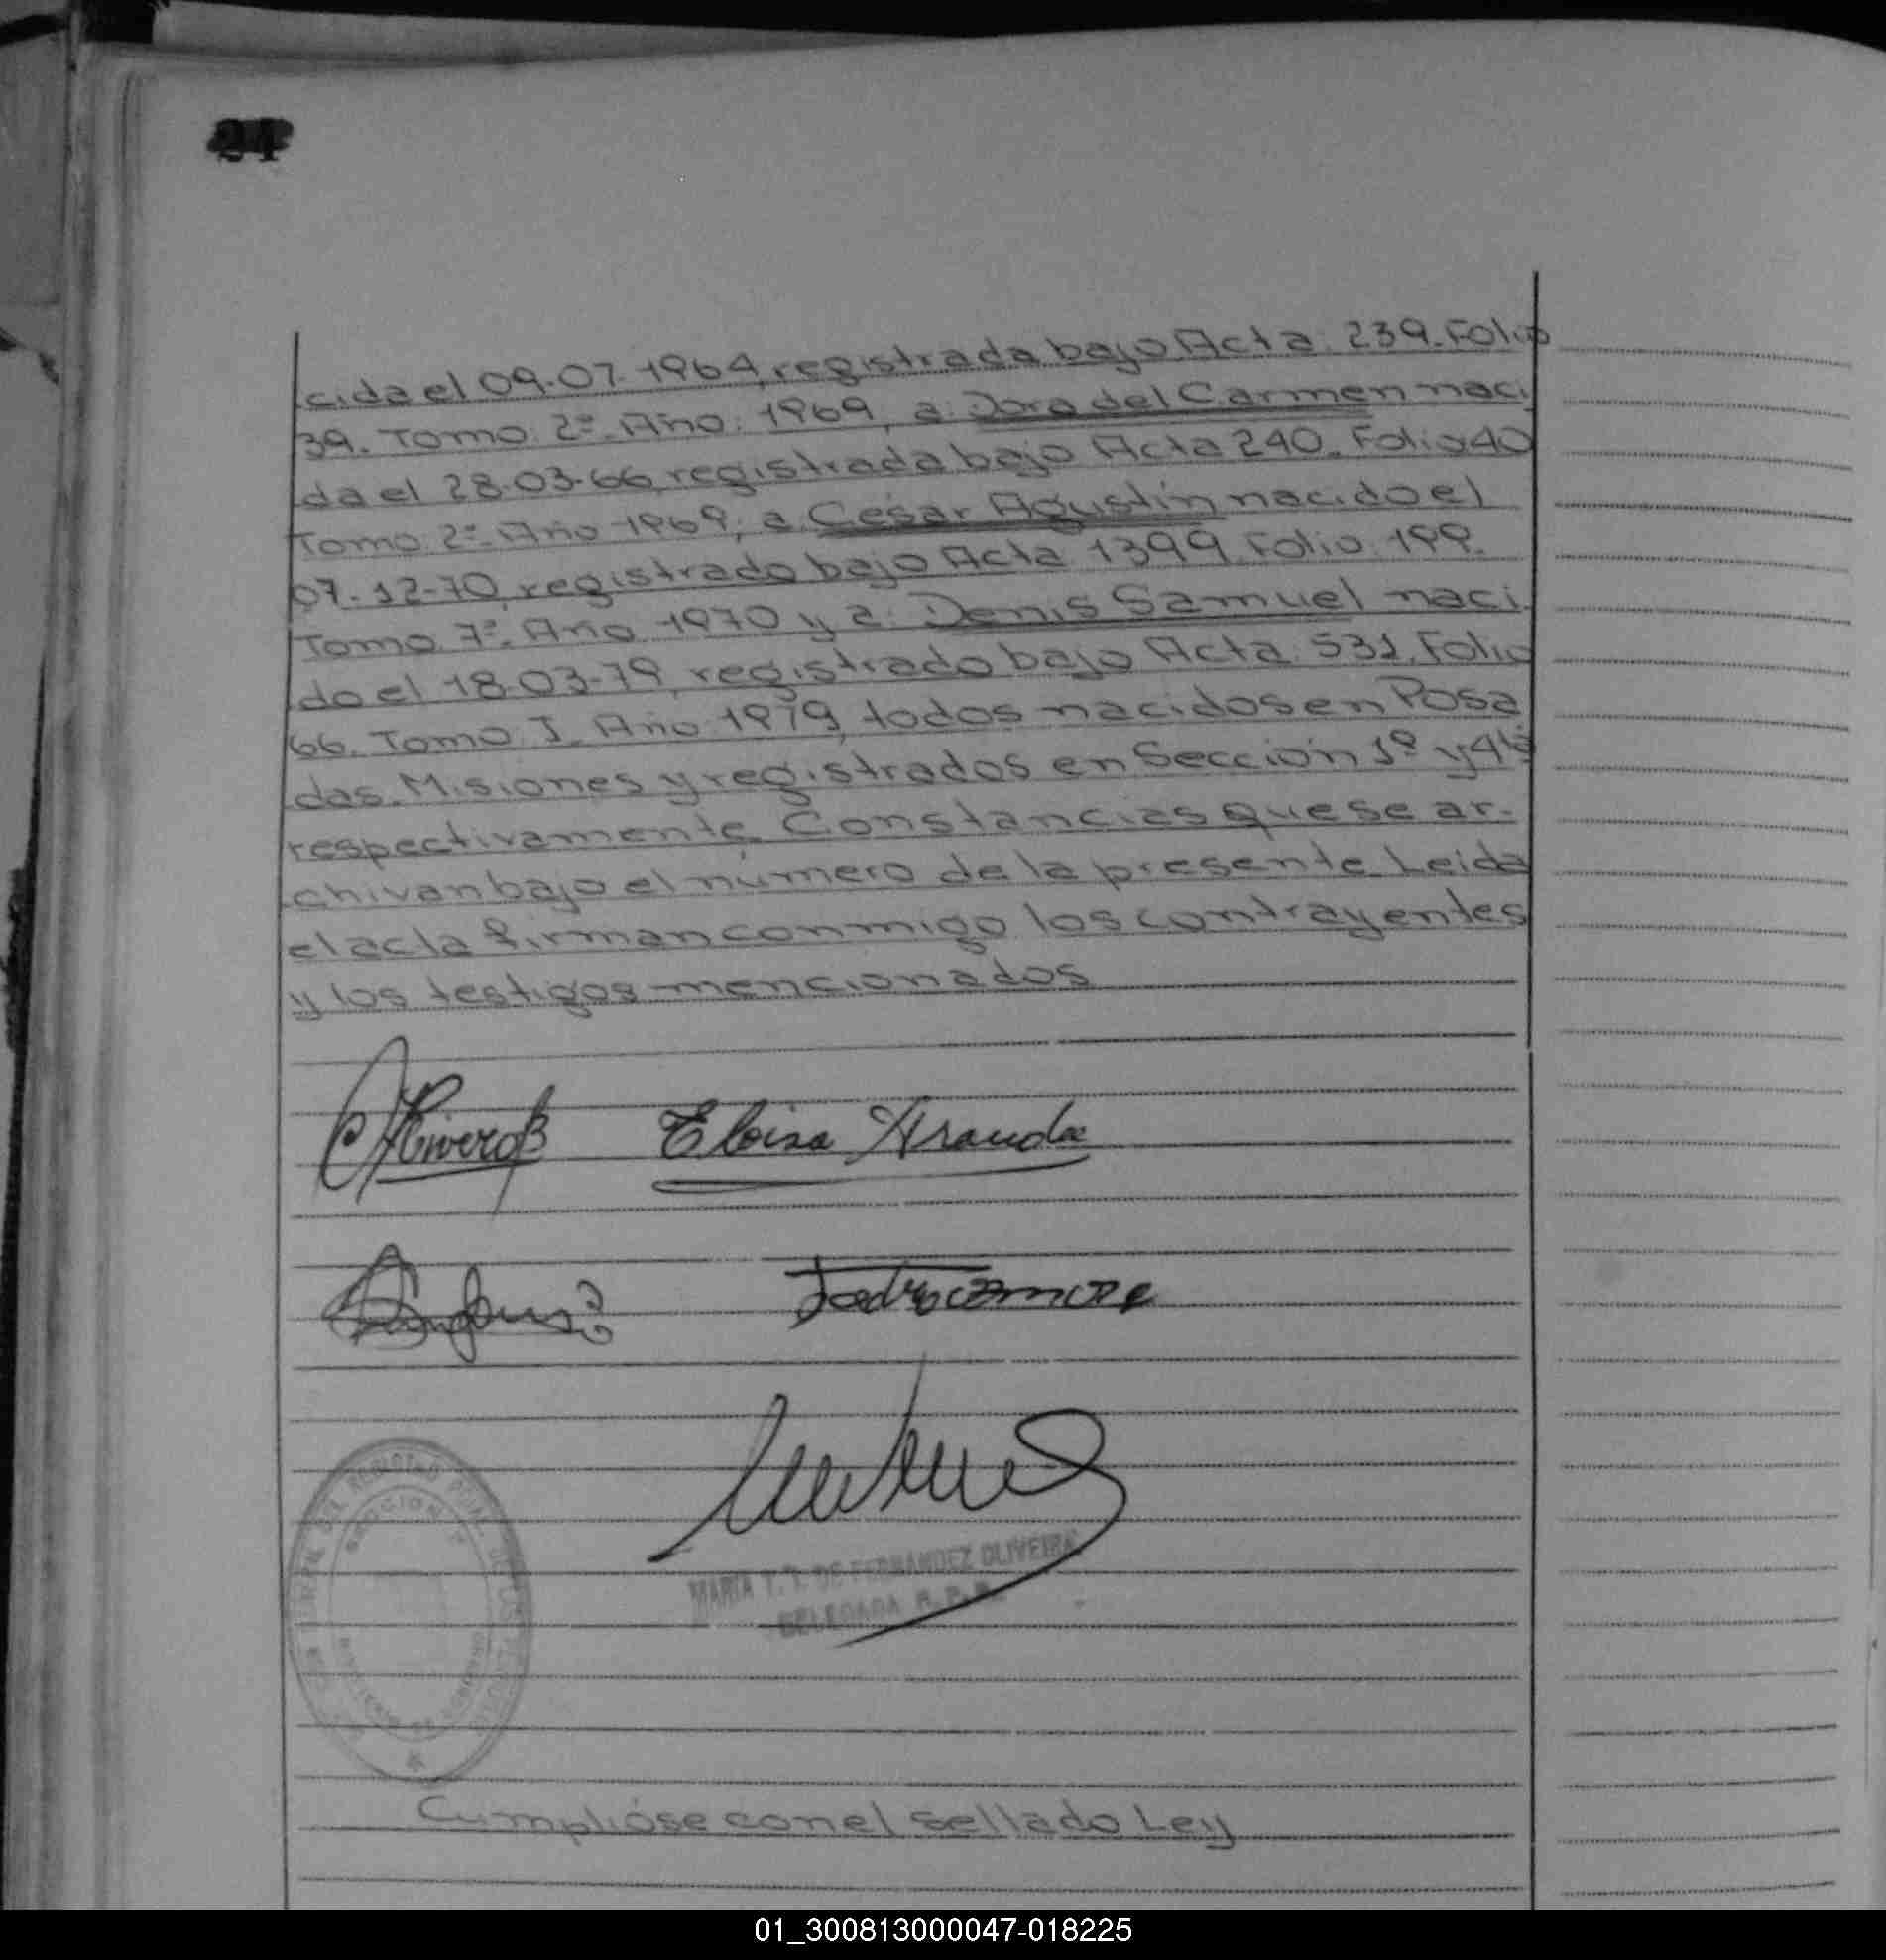 cida el 09-07-1964, registrada bajo Acta: 239. Folio
39. Tomo: 2º. Año: 1969, a: Dora del Carmen naci
da el 28-03-66, registrada bajo Acta 240. Folio 40
Tomo: 2º. Año 1969, a Cesar Agustín nacido el
07-12-70, registrado bajo Acta 1399. Folio: 199.
Tomo 7º. Año 1970 y a: Denis Samuel naci
do el 18-03-79, registrado bajo Acta: 531. Folio
66. Tomo I. Año 1979, todos nacidos en Posa
das. Misiones y registrados en Sección 1º y 4º
respectivamente. Constancias que se ar-
chivan bajo el número de la presente. Leida
el acta firman conmigo los contrayentes
y los testigos mencionados
Eloisa Aranda
MARIA T. T. DE FERNANDEZ OLIVEIRA
DELEGADA R.P.P.
SECCION
Cumplióse con el sellado Ley
01_300813000047-018225